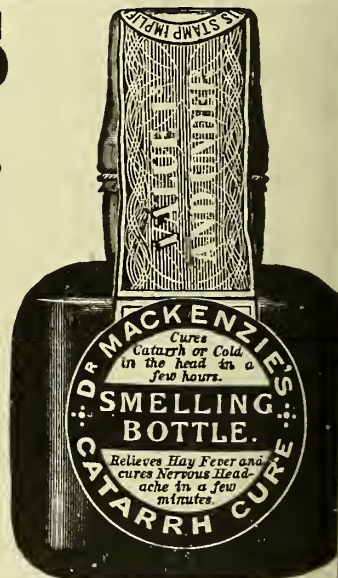 IS STAMP IMPLI
VALUE I
AND UNDER
DR MACKENZIE'S
Cures
Catarrh or Cold
in the head in a
few hours.
SMELLING
BOTTLE.
Relieves Hay Fever and
cures Nervous Head-
ache in a few
minutes.
CATARRH CURE